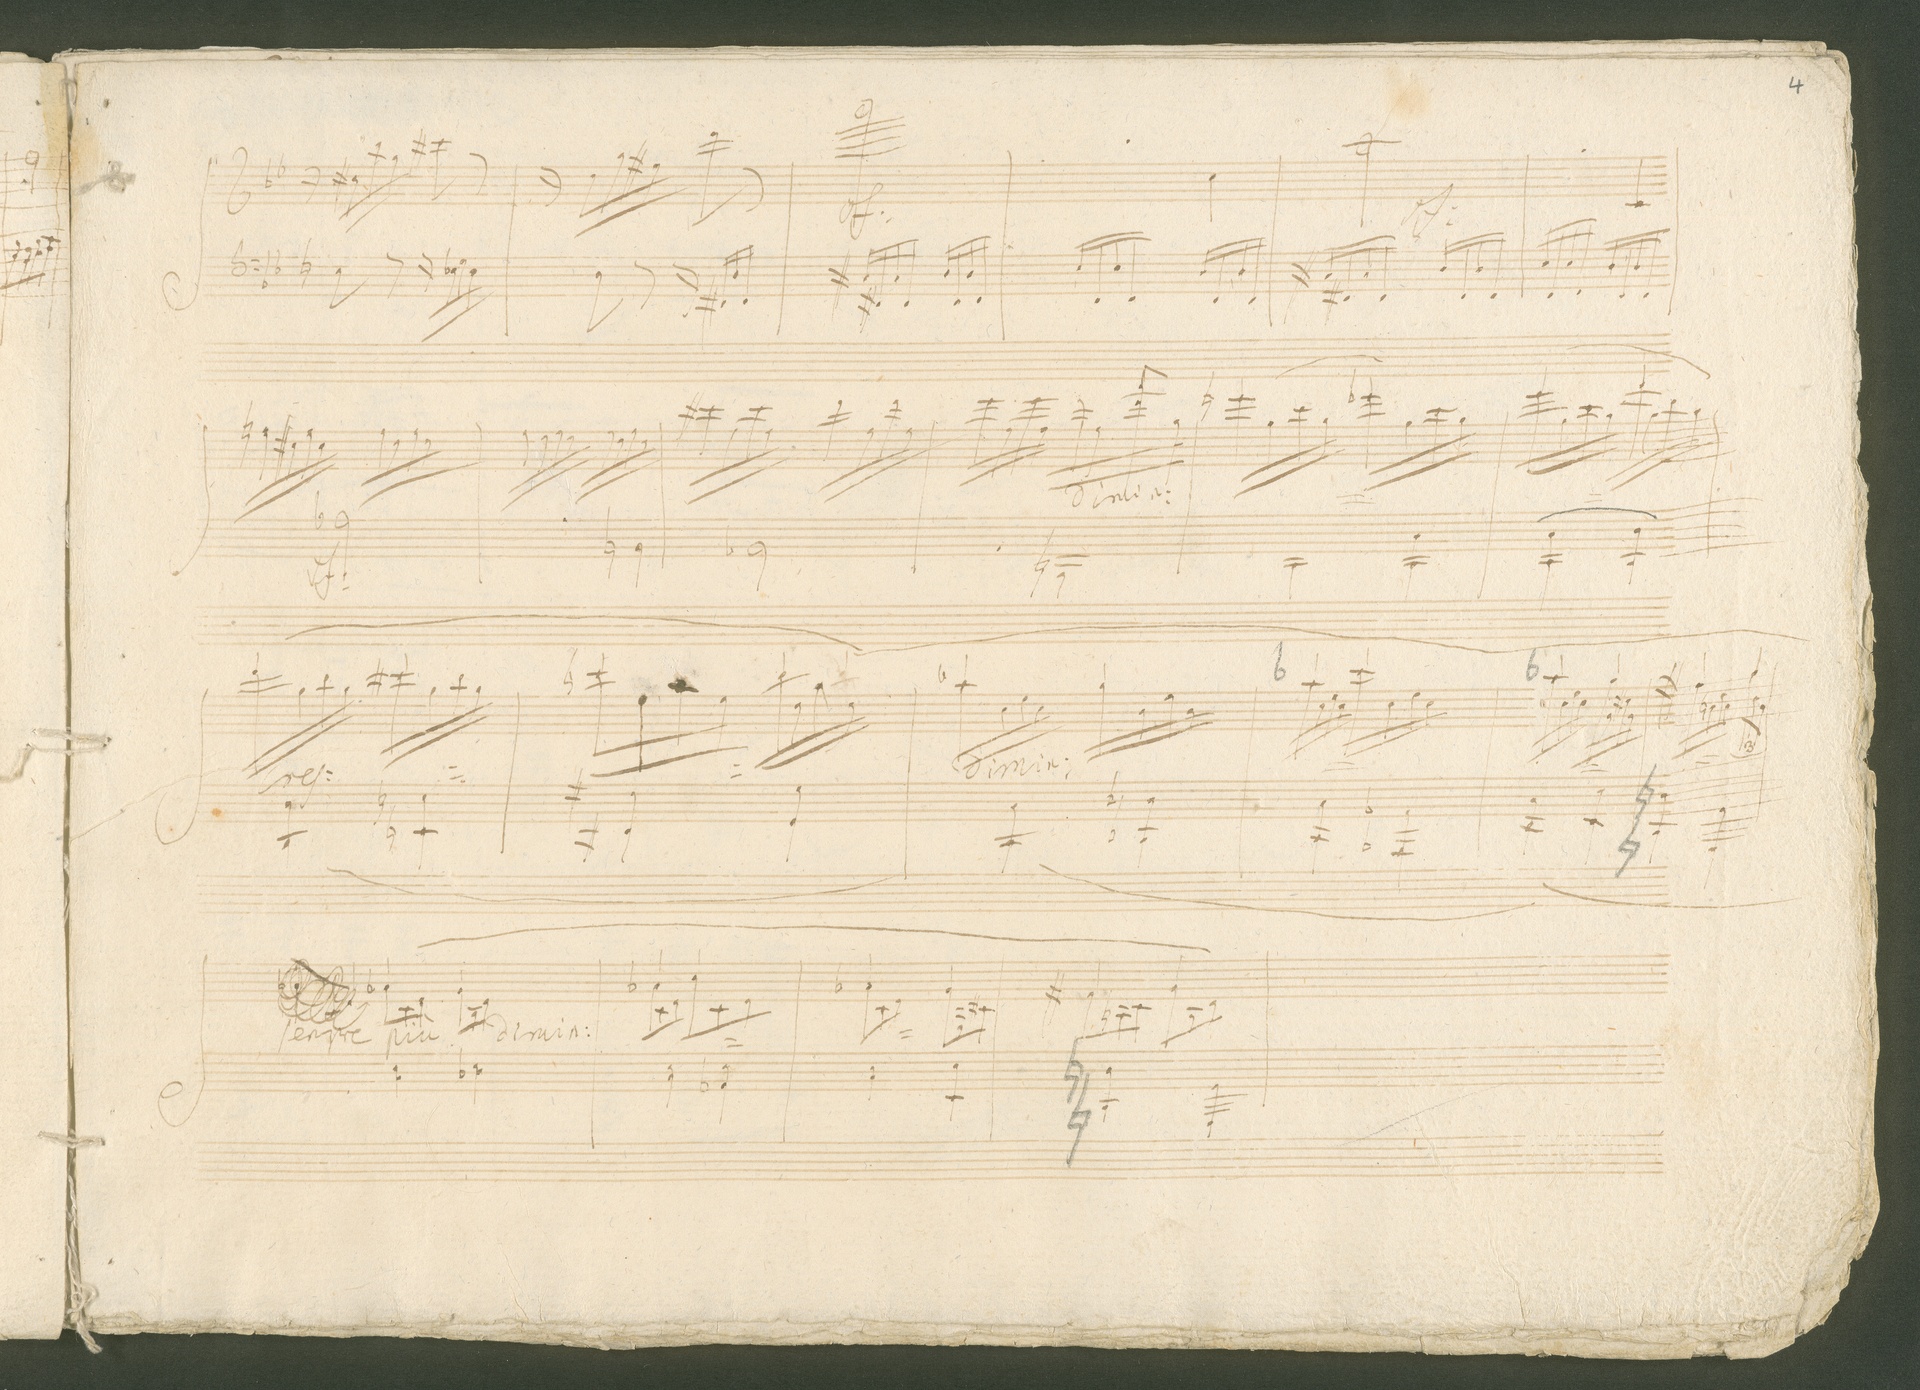 4
sf:
sf:
dimin:
sf:
dimin:
sempre più dimin: